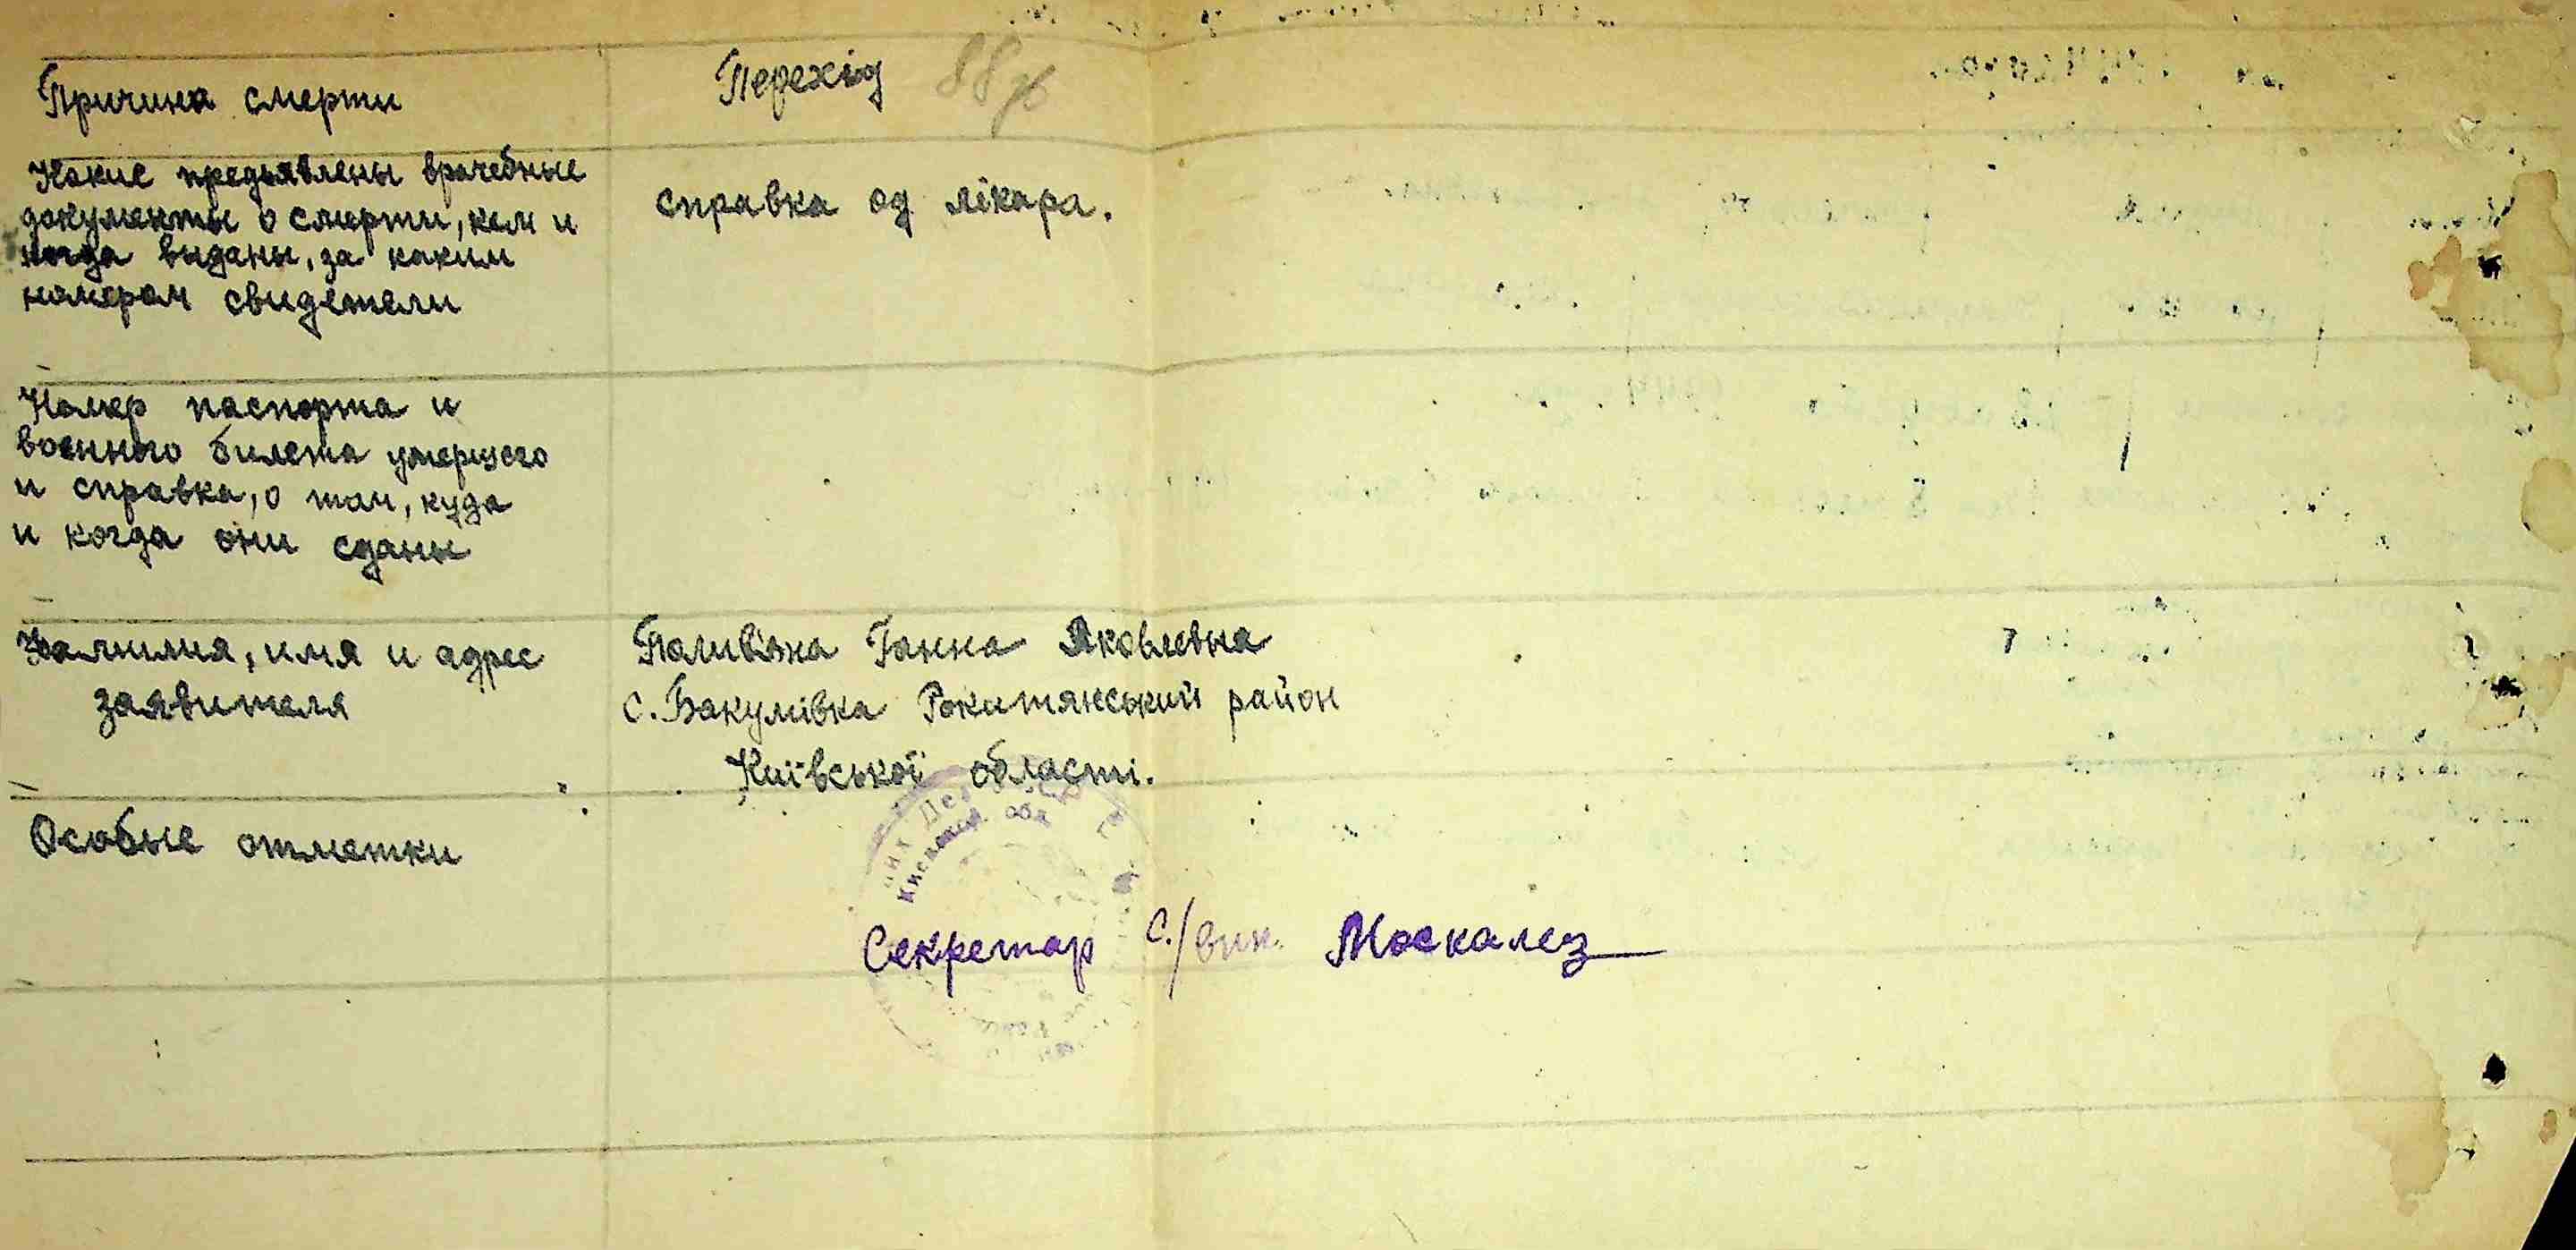 Причина смерти
Перехід
Какие предъявлены врачебные
документы о смерти, кем и
когда выданы, за каким
номером свидетели
справка од лікара.
Номер паспорта и
военного билета умершего
и справка, о том, куда
и когда они сданы
Фамилия, имя и адрес
заявителя
Полив'яна Ганна Яковлевна
с. Бакумівка Рокитянський район
Київської області.
Особые отметки
Киевской обл
Секретар С./вик. Москалец